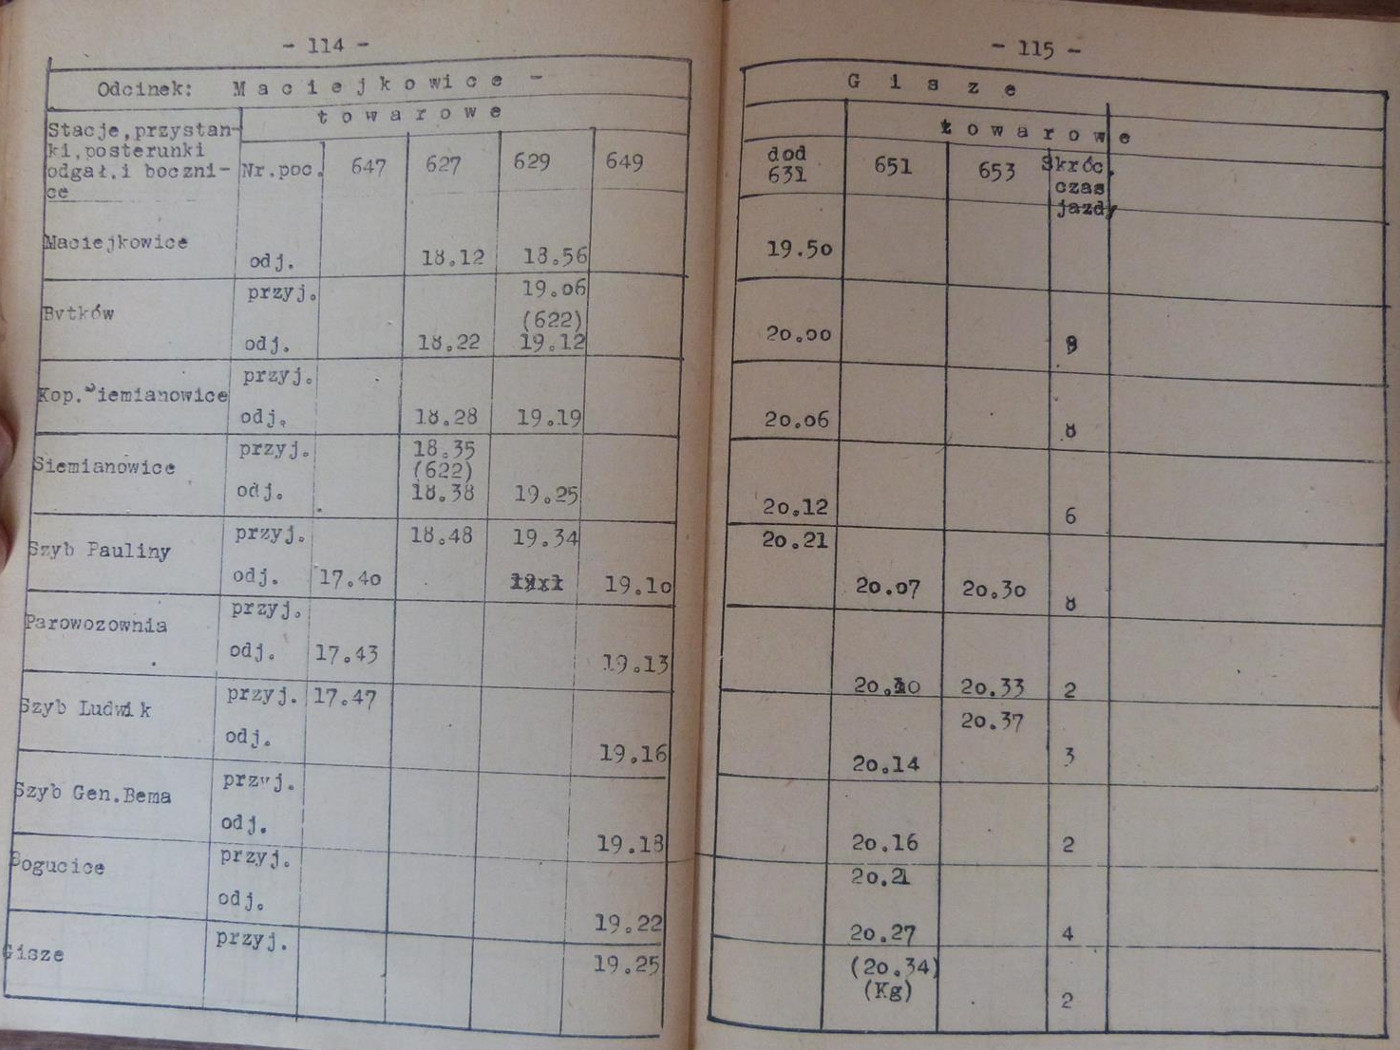 - 114 -
Odcinek: Maciejkowice -
Stacje,przystan-
ki,posterunki
odgał.i boczni-
ce
towarowe
Nr.poc. 647 627 629 649
Maciejkowice
odj. 18.12 18.56
przyj. 19.06
Bytków
(622)
odj. 18.22 19.12
przyj.
Kop.Siemianowice
odj. 18.28 19.19
przyj. 18.35
Siemianowice (622)
odj. 18.38 19.25
przyj. 18.48 19.34
Szyb Pauliny
odj. 17.40 19.10
przyj.
Parowozownia
odj. 17.43 19.13
przyj. 17.47
Szyb Ludwik
odj. 19.16
przyj.
Szyb Gen.Bema
odj. 19.18
przyj.
Bogucice
odj. 19.22
przyj.
Gisze 19.25
- 115 -
Gisze
towarowe
dod 631 651 653 Skróc. czas jazdy
19.50
20.00 9
20.06 8
20.12 6
20.21
20.07 20.30 8
20.10 20.33 2
20.37
20.14 3
20.16 2
20.21
20.27 4
(20.34)
(Kg) 2